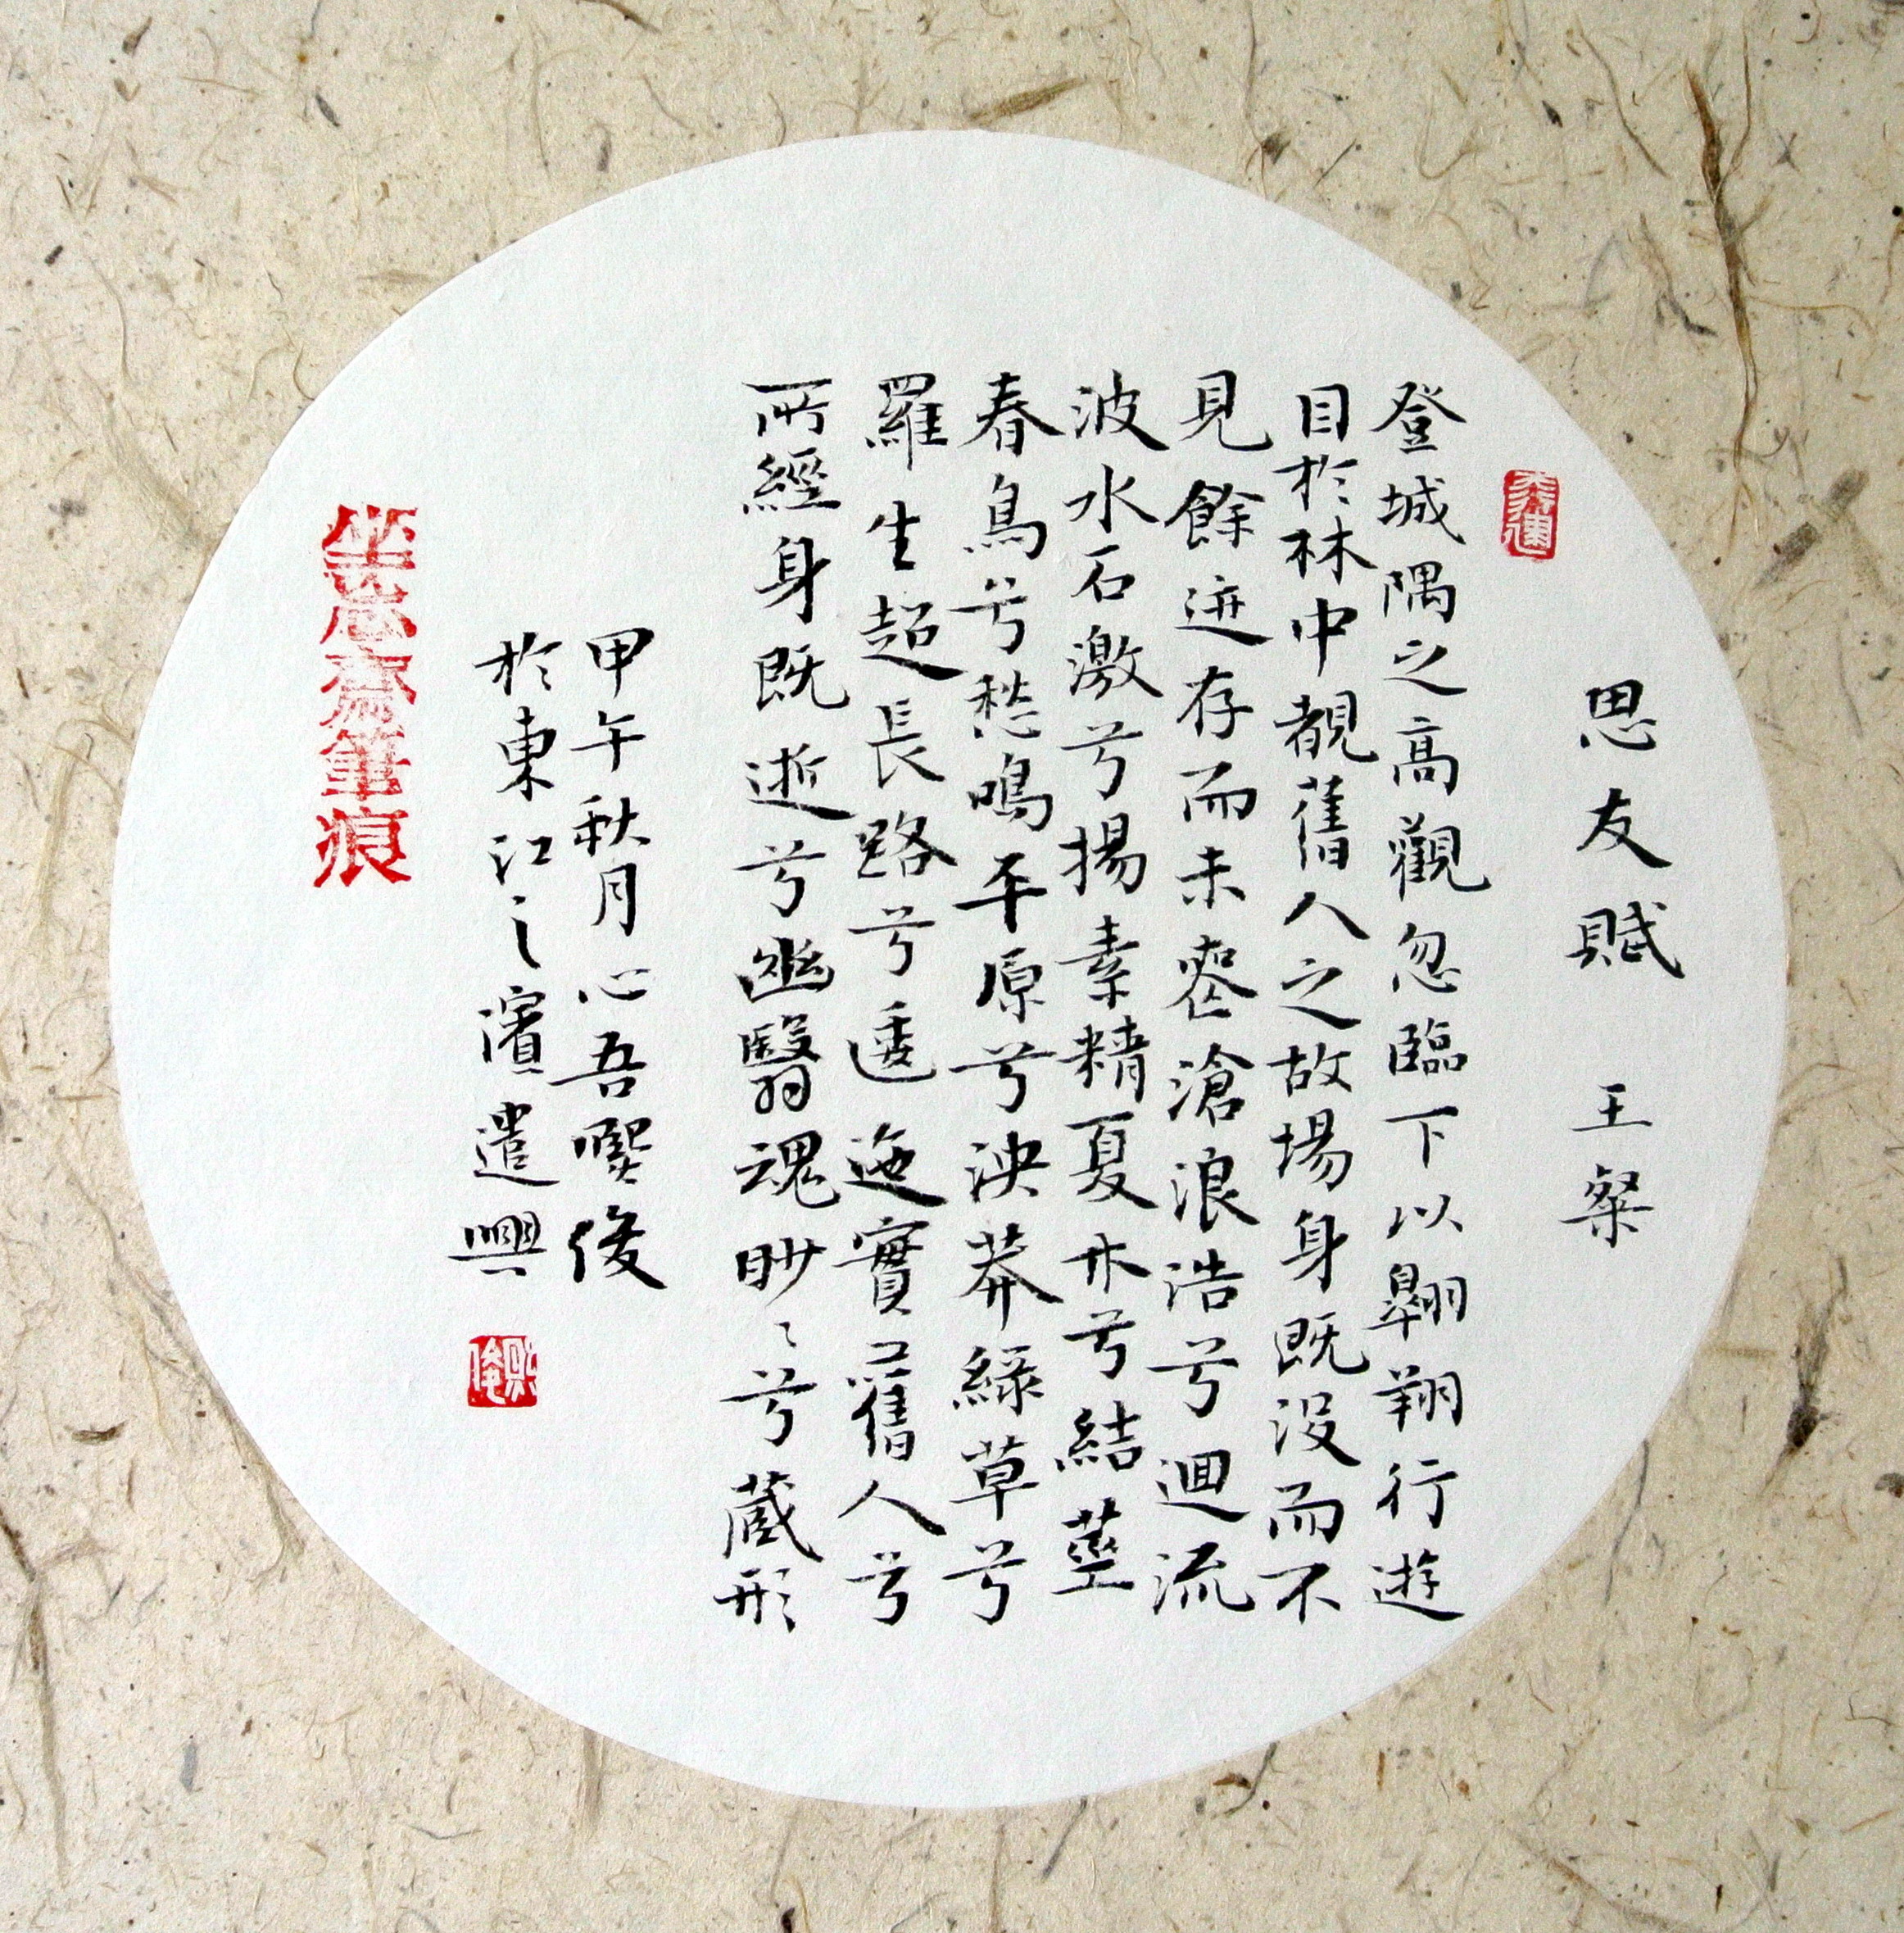 思友賦 王粲
登城隅之高觀忽臨下以翱翔行遊
目於林中覩舊人之故場身既沒而不
見餘迹存而未喪滄浪浩兮迴流
波水石激兮揚素精夏木兮結莖
春鳥兮愁鳴平原兮泱莽綠草兮
羅生超長路兮逶迤實舊人兮
所經身既逝兮幽翳魂眇〻兮藏形
甲午秋月心吾熙俊
於東江之濱遣興
坐忘齋筆痕